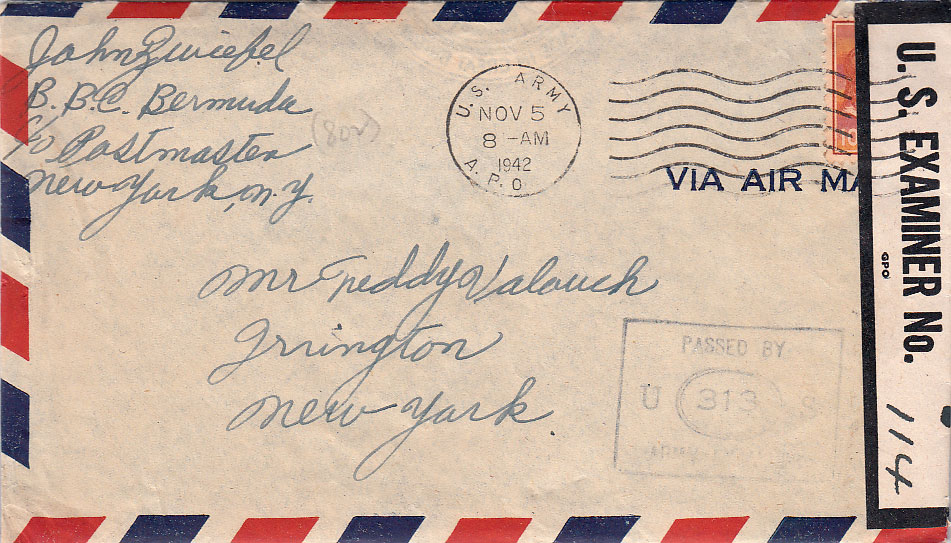 John Zwiefel
B. B. C. Bermuda
c/o Postmaster
New York, N.Y.
(802)
U. S. ARMY
NOV 5
8 - AM
1942
A. P. O.
VIA AIR MA
Mr Teddy Valouch
Irvington
New York.
PASSED BY
U 313 S
ARMY
U. S. EXAMINER No. 114
GPO